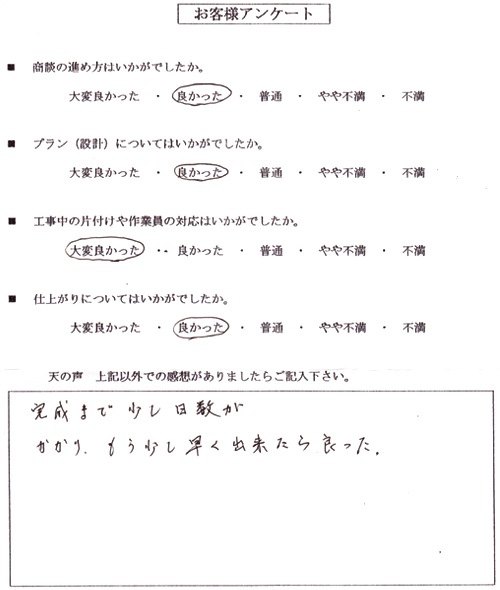 お客様アンケート
■ 商談の進め方はいかがでしたか。
大変良かった ・ 良かった ・ 普通 ・ やや不満 ・ 不満
■ プラン（設計）についてはいかがでしたか。
大変良かった ・ 良かった ・ 普通 ・ やや不満 ・ 不満
■ 工事中の片付けや作業員の対応はいかがでしたか。
大変良かった ・ 良かった ・ 普通 ・ やや不満 ・ 不満
■ 仕上がりについてはいかがでしたか。
大変良かった ・ 良かった ・ 普通 ・ やや不満 ・ 不満
天の声 上記以外での感想がありましたらご記入下さい。
完成まで少し日数が
かかり、もう少し早く出来たら良った。